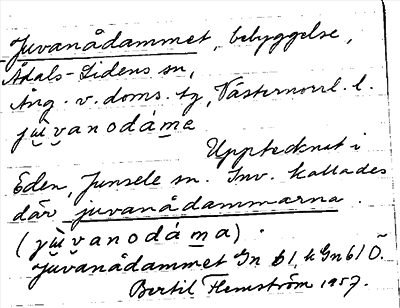 Juvanådammet, bebyggelse,
Ådals-Lidens sn,
Ång. v. doms. tg, Västernorrl. l.
jùvanodáma
Upptecknat i
Eden, Junsele sn. Inv. kallades
där juvanådammarna.
(jùvanodámna).
Juvanådammet Gn b1, k Gn b1 Ö.
Bertil Flemström 1957.